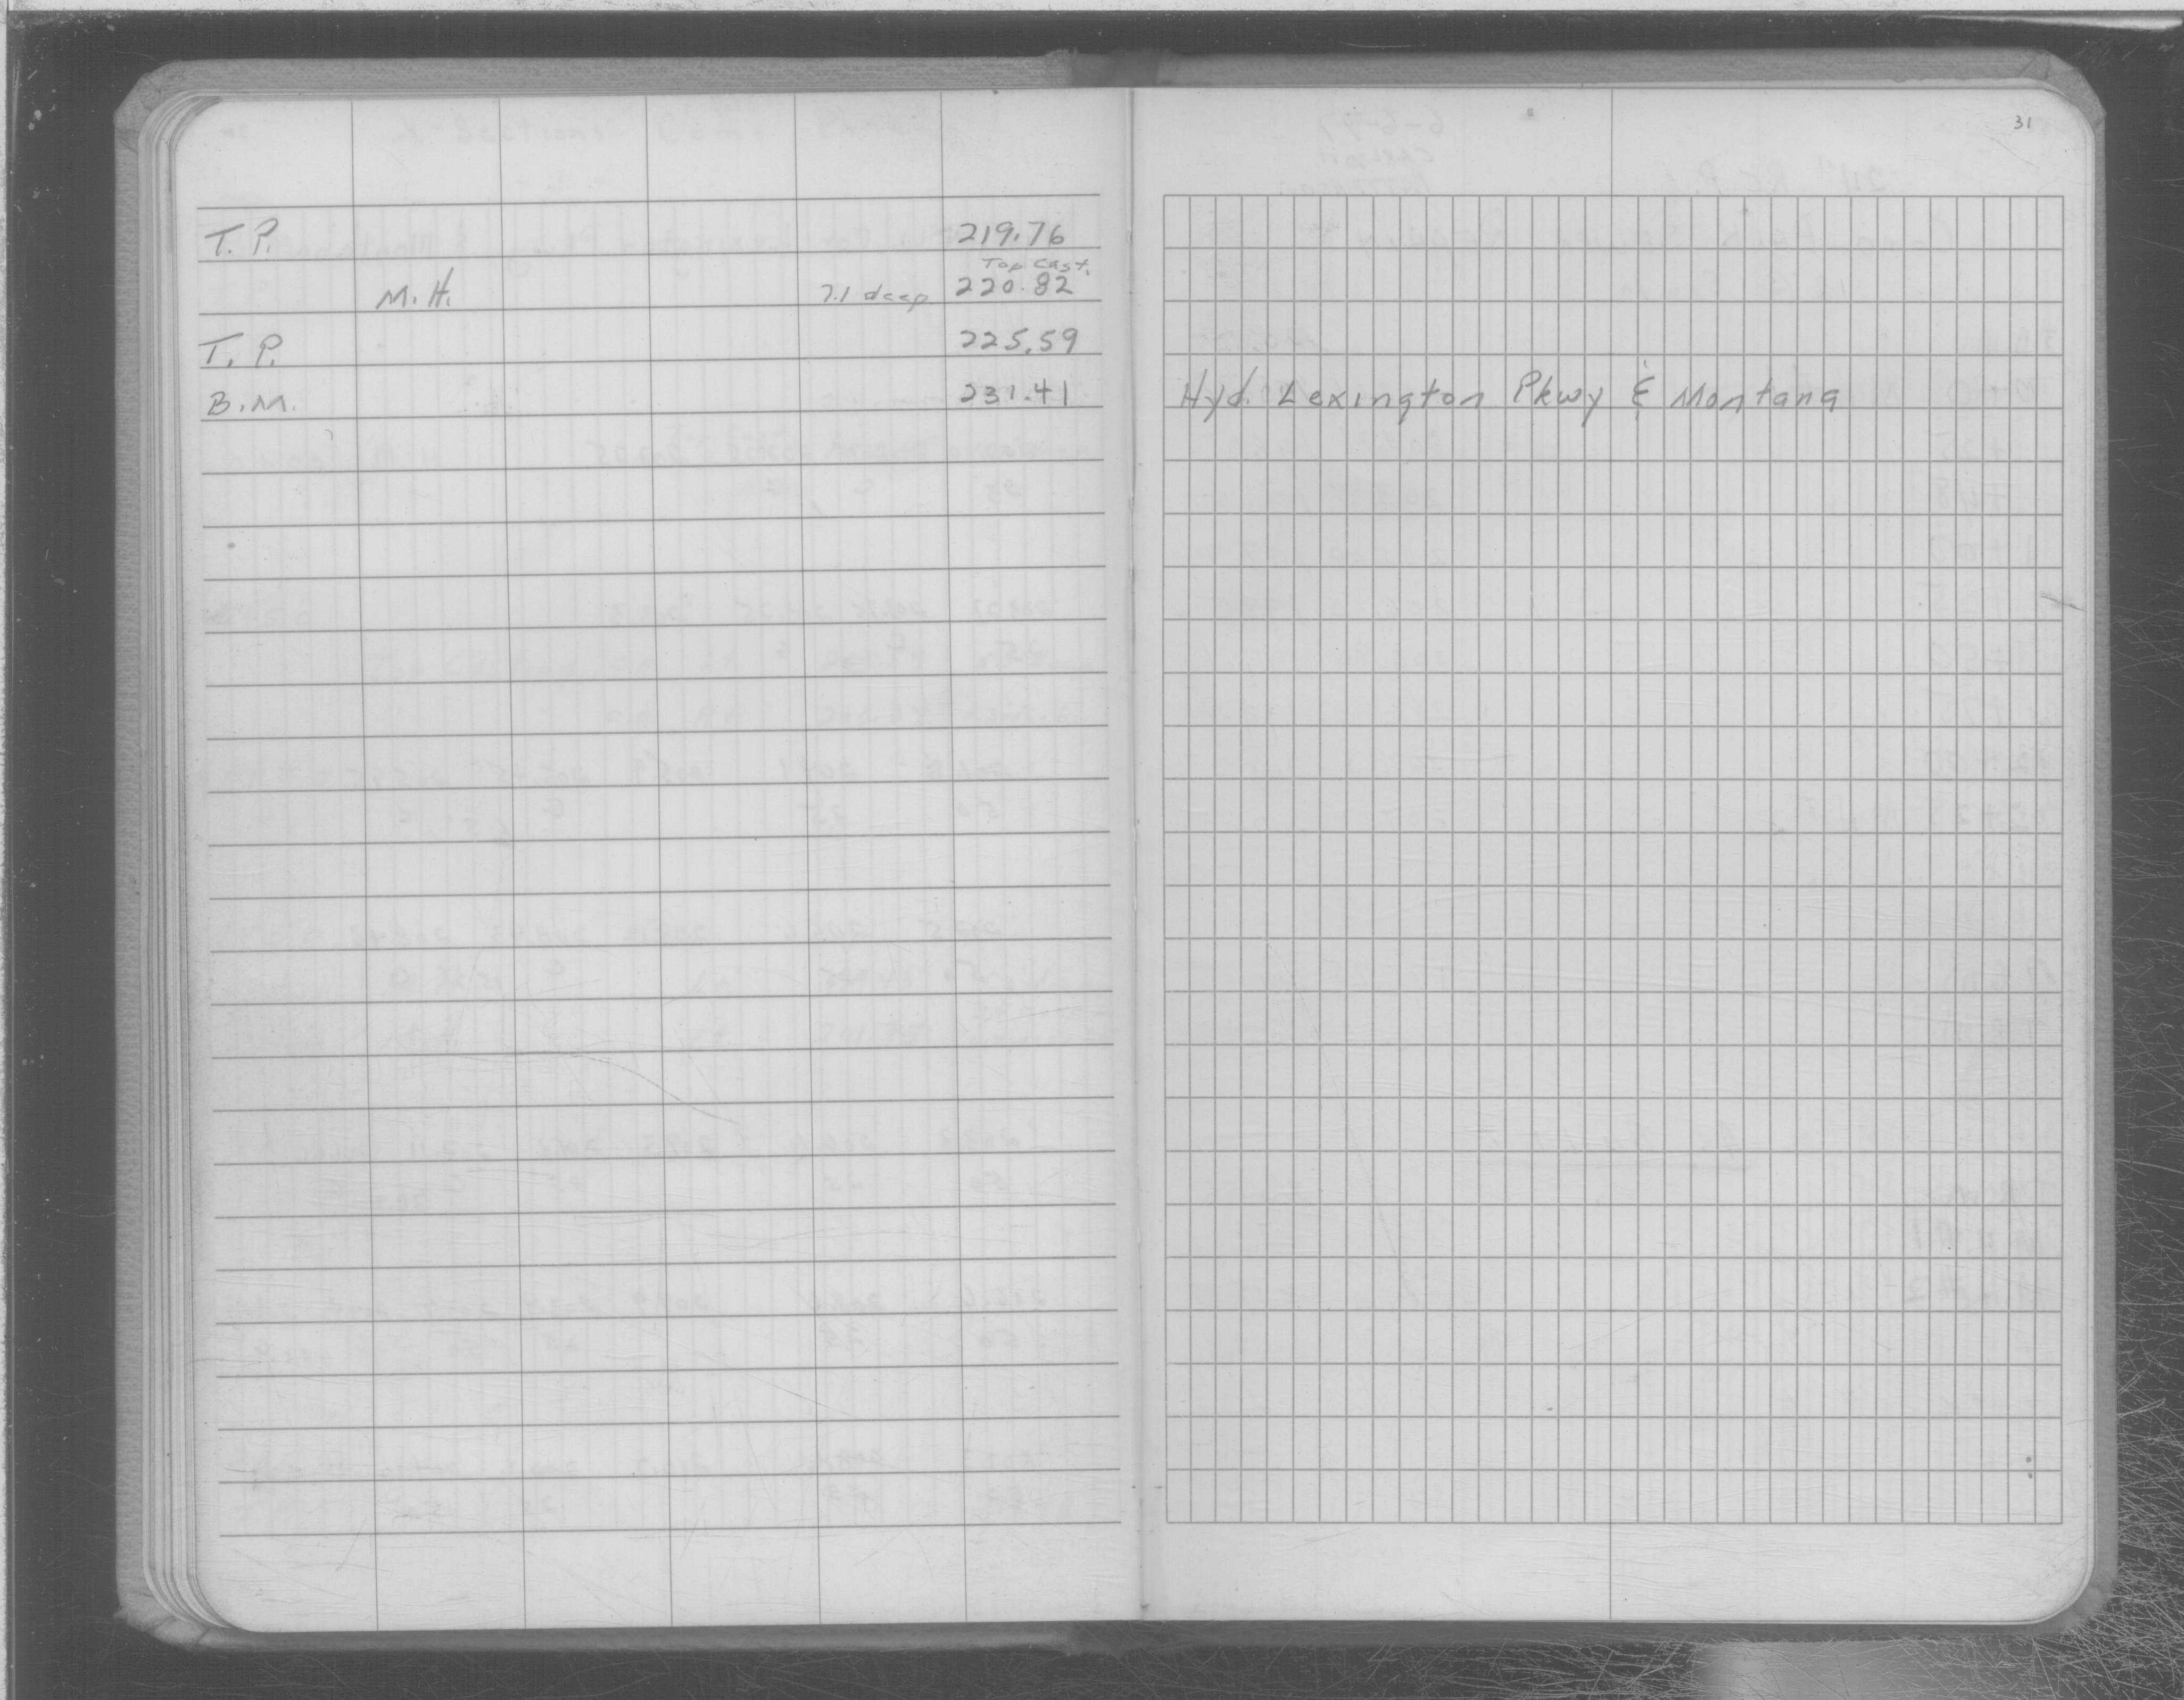 31
T. P. 219.76
Top Cast.
M. H. 7.1 deep 220.82
T. P. 225.59
B.M. 231.41 Hyd. Lexington Pkwy & Montana